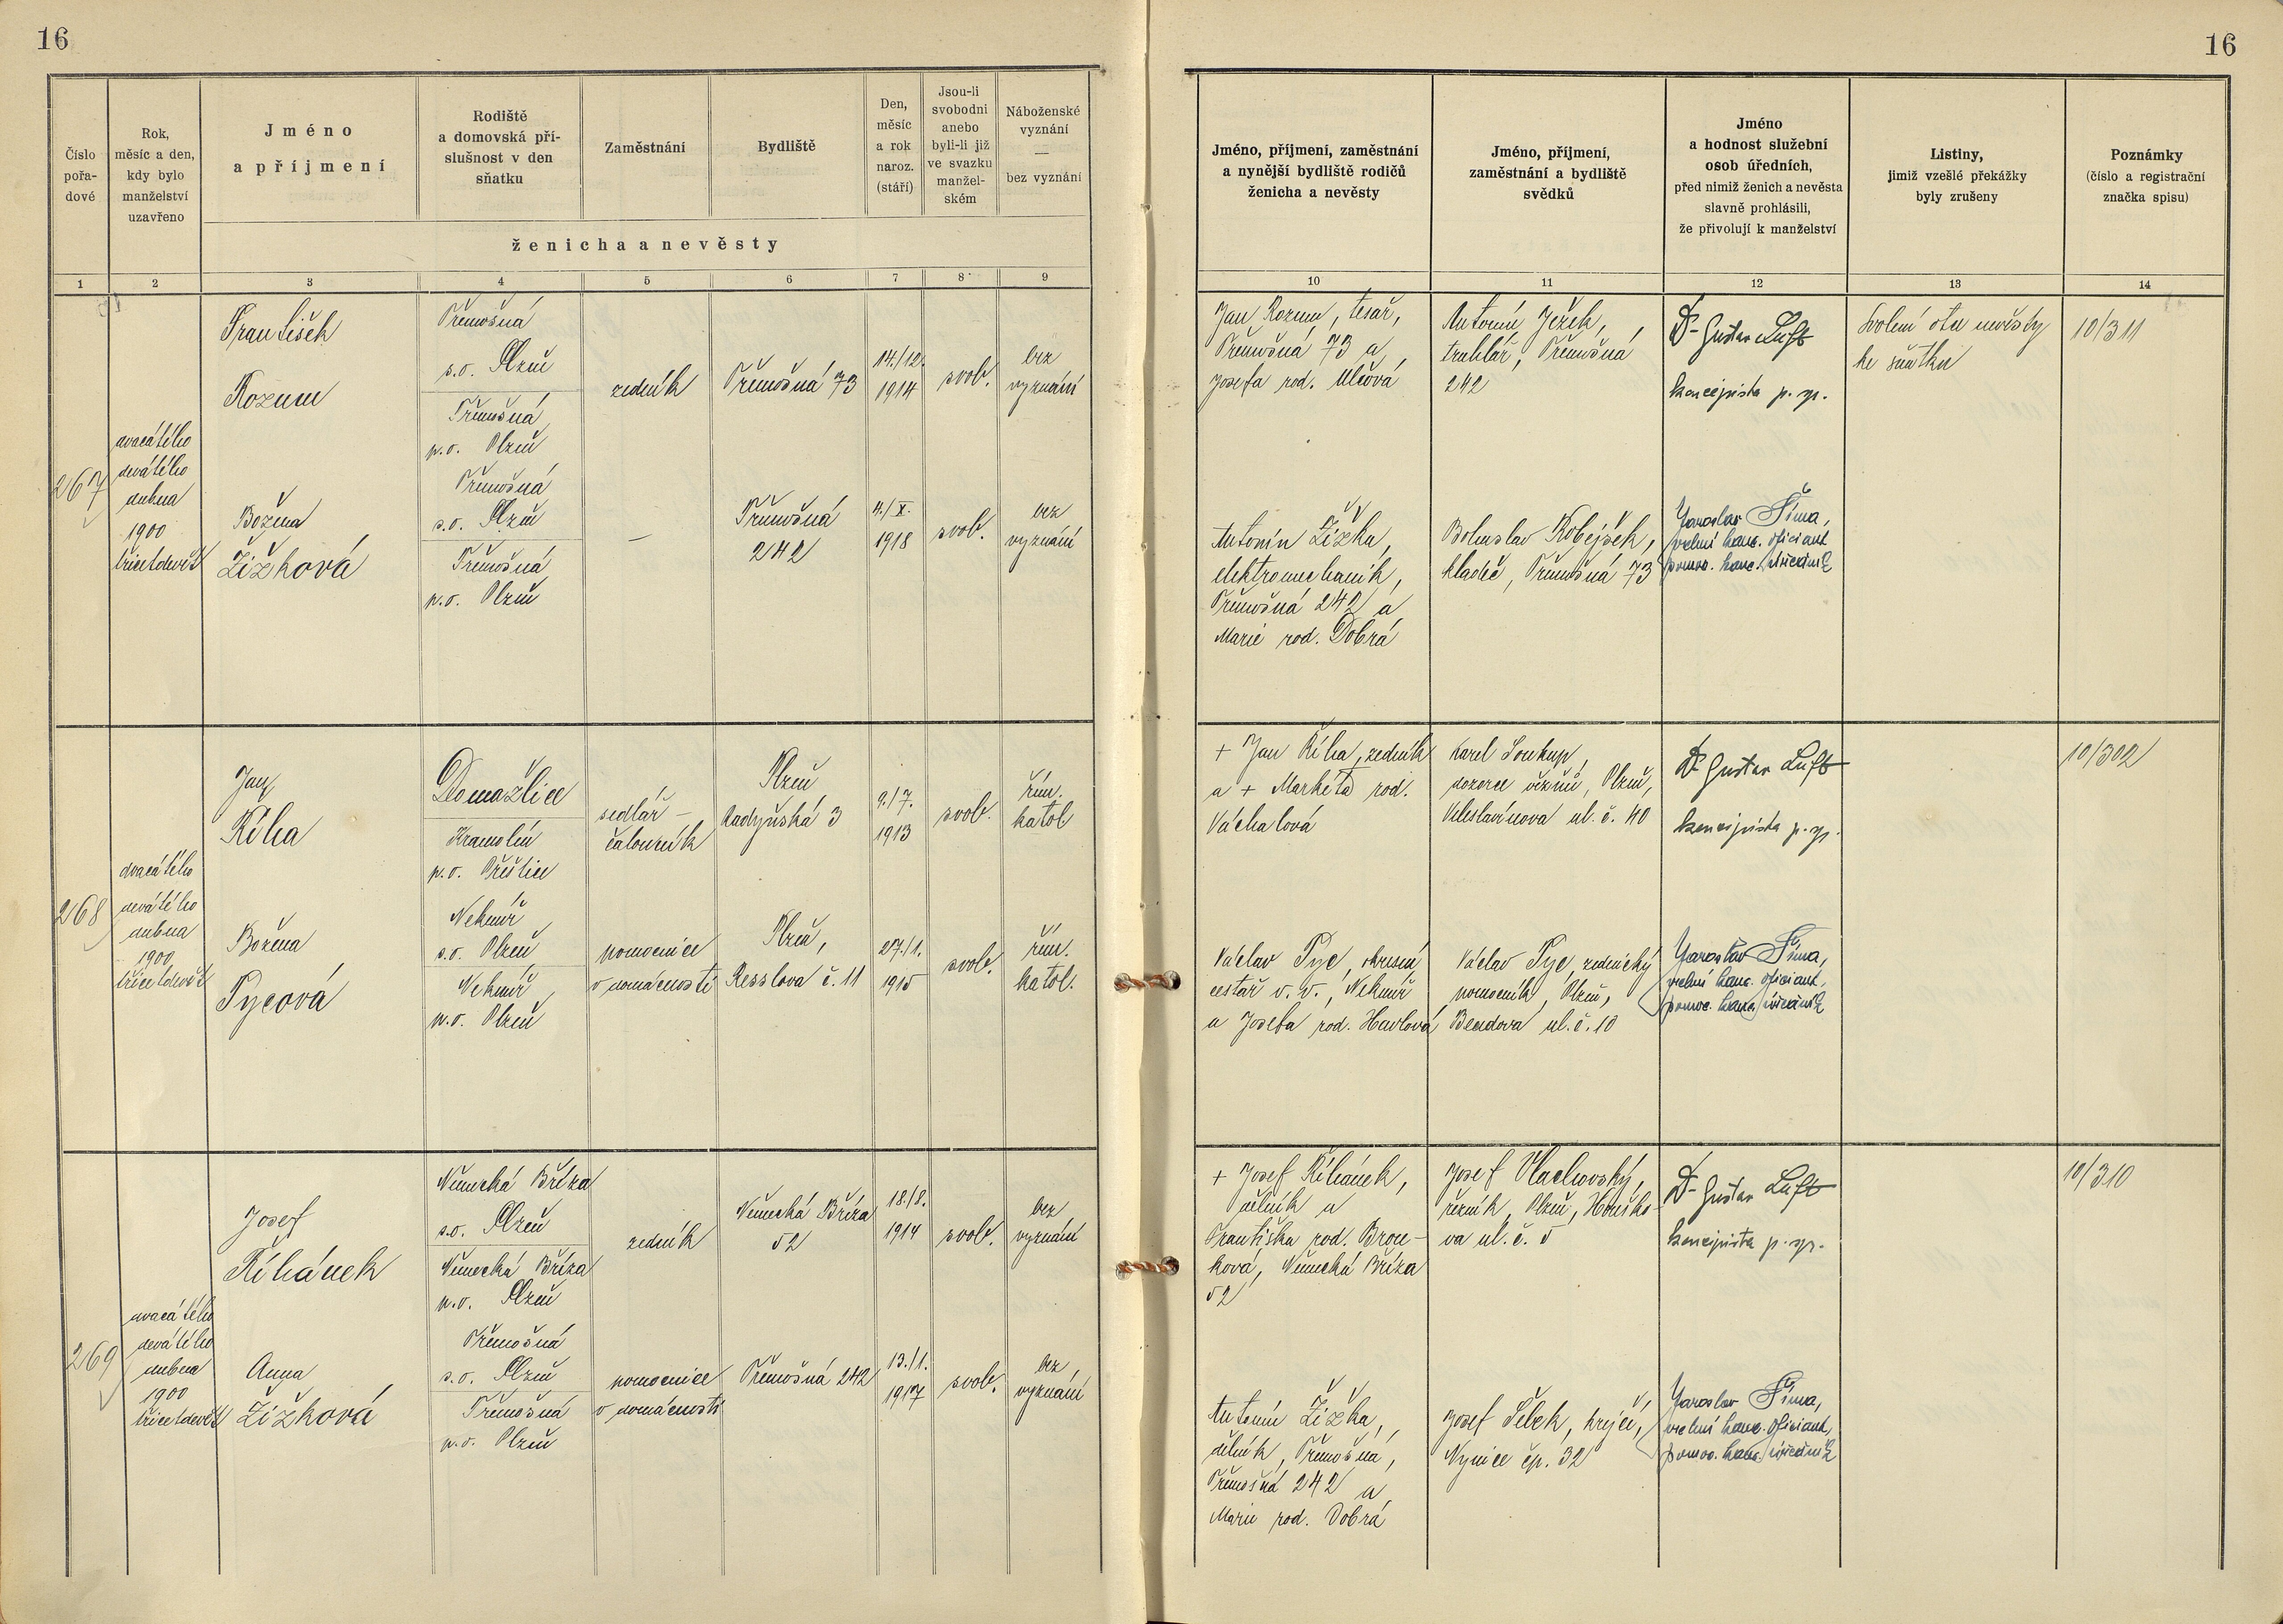 16
16
Číslo
pořa-
dové
Rok,
měsíc a den,
kdy bylo
manželství
uzavřeno
Jméno
a příjmení
Rodiště
a domovská pří-
slušnost v den
sňatku
Zaměstnání
Bydliště
Den,
měsíc
a rok
naroz.
(stáří)
Jsou-li
svobodni
anebo
byli-li již
ve svazku
manžel-
ském
Náboženské
vyznání
—
bez vyznání
ženicha a nevěsty
Jméno, příjmení, zaměstnání
a nynější bydliště rodičů
ženicha a nevěsty
Jméno, příjmení,
zaměstnání a bydliště
svědků
Jméno
a hodnost služební
osob úředních,
před nimiž ženich a nevěsta
slavně prohlásili,
že přivolují k manželství
Listiny,
jimiž vzešlé překážky
byly zrušeny
Poznámky
(číslo a registrační
značka spisu)
1 2 3 4 5 6 7 8 9 10 11 12 13 14
267
dvacátého
devátého
dubna
1900
třicetdevět
František
Rozum
Třemošná
s.o. Plzeň
Třemošná
p.o. Plzeň
zedník
Třemošná 73
14./12.
1914
svob.
bez
vyznání
Jan Rozum, tesař,
Třemošná 73 a
Josefa rod. Ulčová
Antonín Ježek,
truhlář, Třemošná
242
Dr Gustav Luft
koncipista p. spr.
Svolení otce nevěsty
ke sňatku
10/311
Božena
Žižková
Třemošná
s.o. Plzeň
Třemošná
p.o. Plzeň
—
Třemošná
242
4./X.
1918
svob.
bez
vyznání
Antonín Žižka,
elektromechanik,
Třemošná 242 a
Marie rod. Dobrá
Bohuslav Kobejšek,
kladeč, Třemošná 73
Jaroslav Šíma,
vrchní kanc. oficiant
pomoc. kanc. úředník
268
dvacátého
devátého
dubna
1900
třicetdevět
Jan
Říha
Domažlice
Kramolín
p.o. Přeštice
sedlář –
čalouník
Plzeň
Radyňská 3
9./7.
1913
svob.
řím.
katol
+ Jan Říha, zedník
a + Markéta rod.
Váchalová
Karel Soukup,
dozorce vězňů, Plzeň,
Veleslavínova ul. č. 40
Dr Gustav Luft
koncipista p. spr.
10/302
Božena
Pycová
Nekmíř
s.o. Plzeň
Nekmíř
p.o. Plzeň
pomocnice
v domácnosti
Plzeň,
Resslova č. 11
27./1.
1915
svob.
řím.
katol.
Václav Pyc, okresní
cestář v. v., Nekmíř
a Josefa rod. Havlová
Václav Pyc, zednický
pomocník, Plzeň,
Bendova ul. č. 10
Jaroslav Šíma,
vrchní kanc. oficiant,
pomoc. kanc. úředník
269
dvacátého
devátého
dubna
1900
třicetdevět
Josef
Říhánek
Německá Bříza
s.o. Plzeň
Německá Bříza
p.o. Plzeň
zedník
Německá Bříza
52
18./8.
1914
svob.
bez
vyznání
+ Josef Říhánek,
dělník a
Františka rod. Brou-
ková, Německá Bříza
52
Josef Vlachovský,
řezník, Plzeň, Houško-
va ul. č. 5
Dr Gustav Luft
koncipista p. spr.
10/310
Anna
Žižková
Třemošná
s.o. Plzeň
Třemošná
p.o. Plzeň
pomocnice
v domácnosti
Třemošná 242
13./1.
1917
svob.
bez
vyznání
Antonín Žižka,
dělník, Třemošná,
Třemošná 242 a
Marie rod. Dobrá
Josef Šebek, krejčí,
Nynice čp. 32
Jaroslav Šíma,
vrchní kanc. oficiant,
pomoc. kanc. úředník